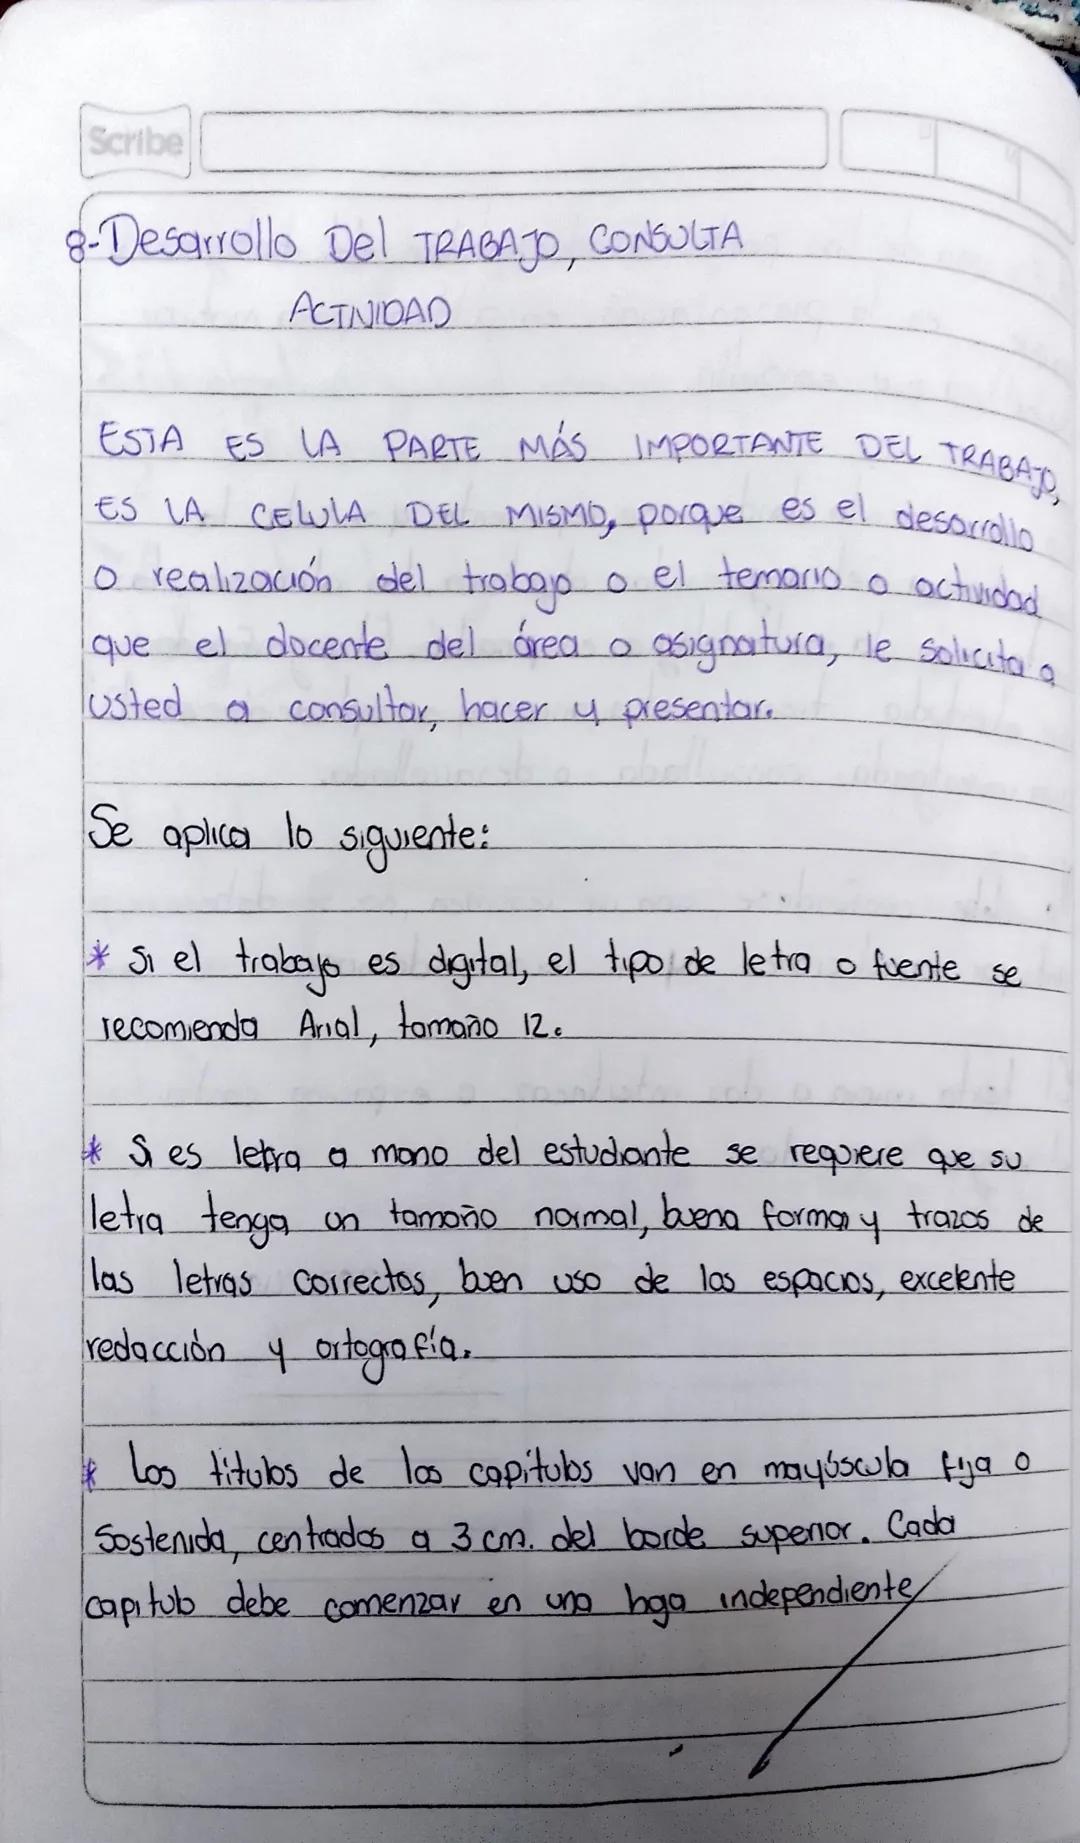 Scribe
8-Desarrollo Del TRABAJO, CONSULTA
ACTIVIDAD
ESTA ES LA PARTE MÁS IMPORTANTE DEL TRABAJO,
ES LA CELULA DEL MISMO, porque es el desarrollo
o realización del trabajo o el temario o actividad
que el docente del área o asignatura, le solicita a
usted a consultar, hacer y presentar.
Se aplica lo siguiente:
* Si el trabajo es digital, el tipo de letra o fuente se
recomienda Arial, tamaño 12.
* Si es letra a mano del estudiante se requiere que su
letra tenga un tamaño normal, buena forma y trazos de
las letras correctos, buen uso de los espacios, excelente
redacción y ortografía.
* Los titulos de los capítulos van en mayúscula fija o
Sostenida, centrados a 3 cm. del borde superior. Cada
capitulo debe comenzar en una hoja independiente